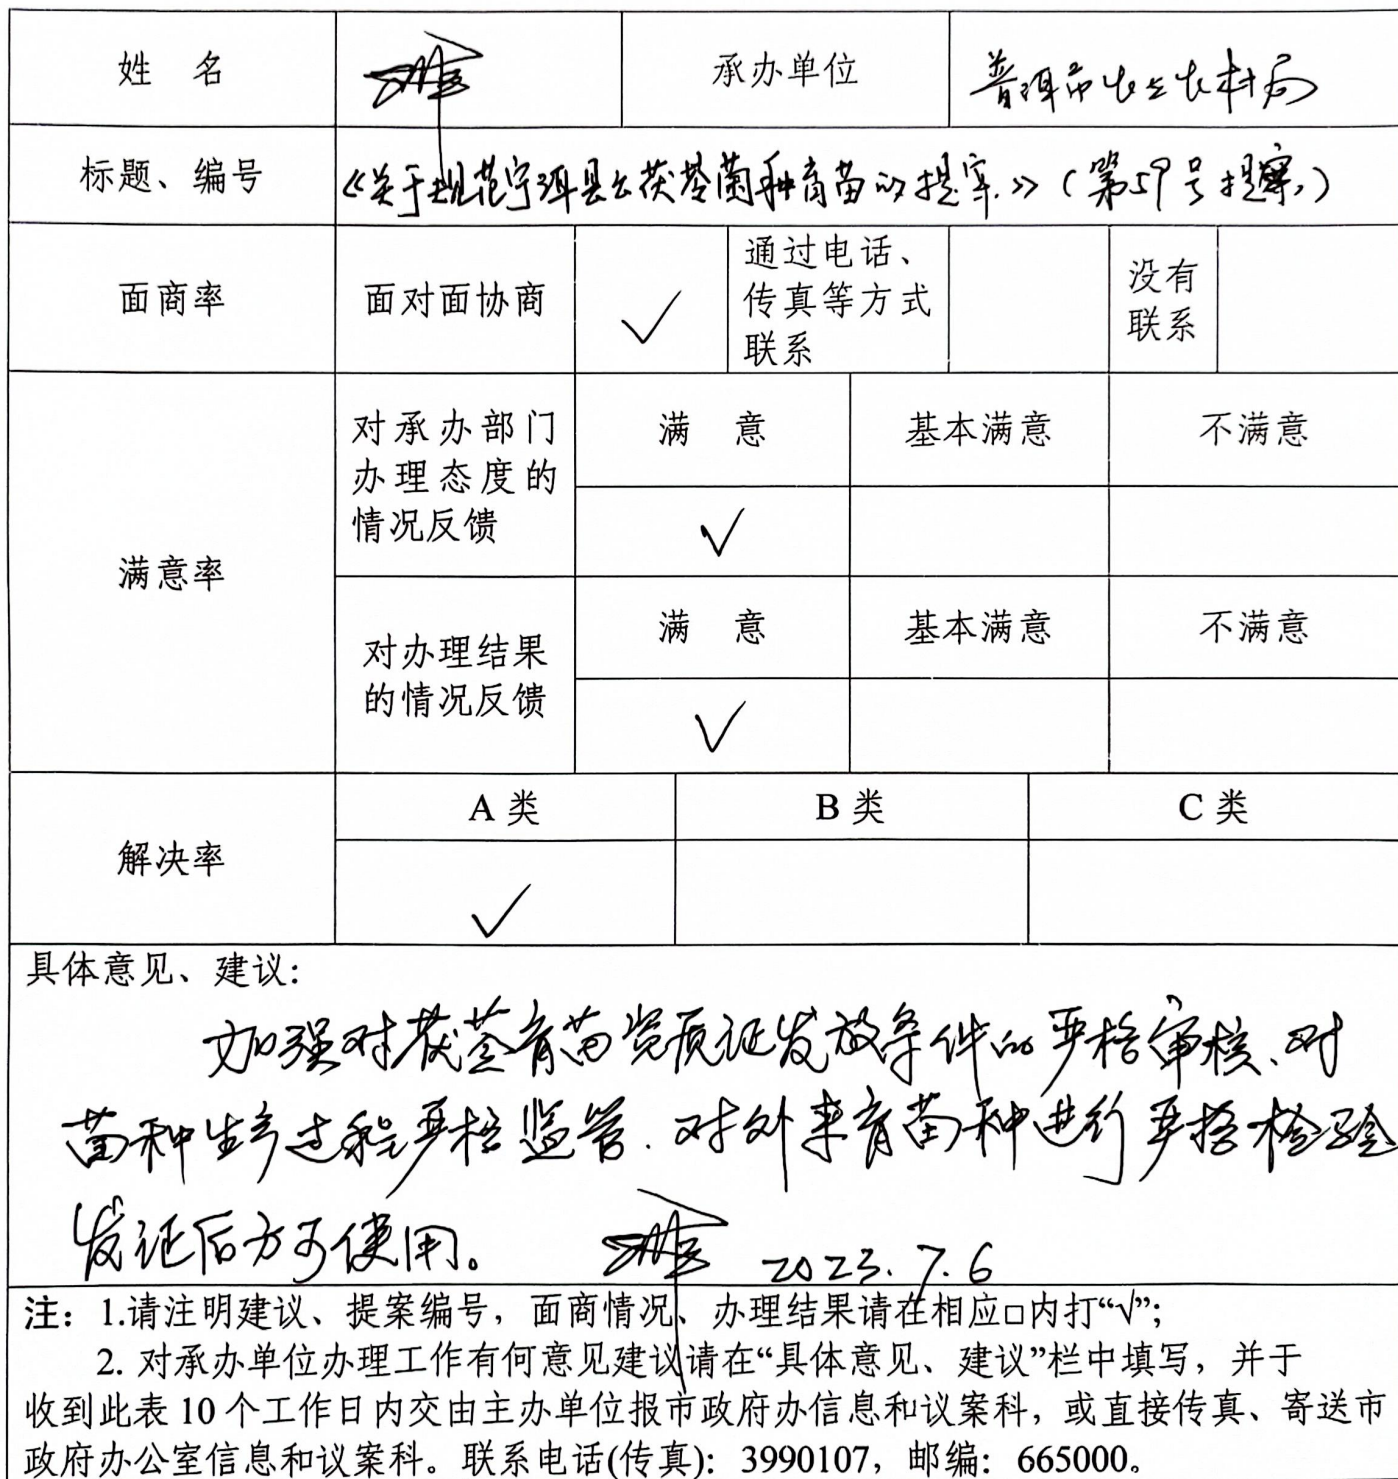 姓 名 承办单位 普洱市农业农村局
标题、编号 《关于规范宁洱县云茯苓菌种育苗的提案》（第59号提案）
面商率 面对面协商 √ 通过电话、
传真等方式
联系 没有
联系
满意率 对承办部门
办理态度的
情况反馈 满 意 基本满意 不满意
√
对办理结果
的情况反馈 满 意 基本满意 不满意
√
解决率 A 类 B 类 C 类
√
具体意见、建议：
加强对茯苓育苗资质证发放条件的严格审核、对
菌种生产过程严格监管．对外来育苗种进行严格检验
发证后方可使用。 2023.7.6
注：1.请注明建议、提案编号，面商情况、办理结果请在相应□内打“√”；
2. 对承办单位办理工作有何意见建议请在“具体意见、建议”栏中填写，并于
收到此表 10 个工作日内交由主办单位报市政府办信息和议案科，或直接传真、寄送市
政府办公室信息和议案科。联系电话(传真)：3990107，邮编：665000。